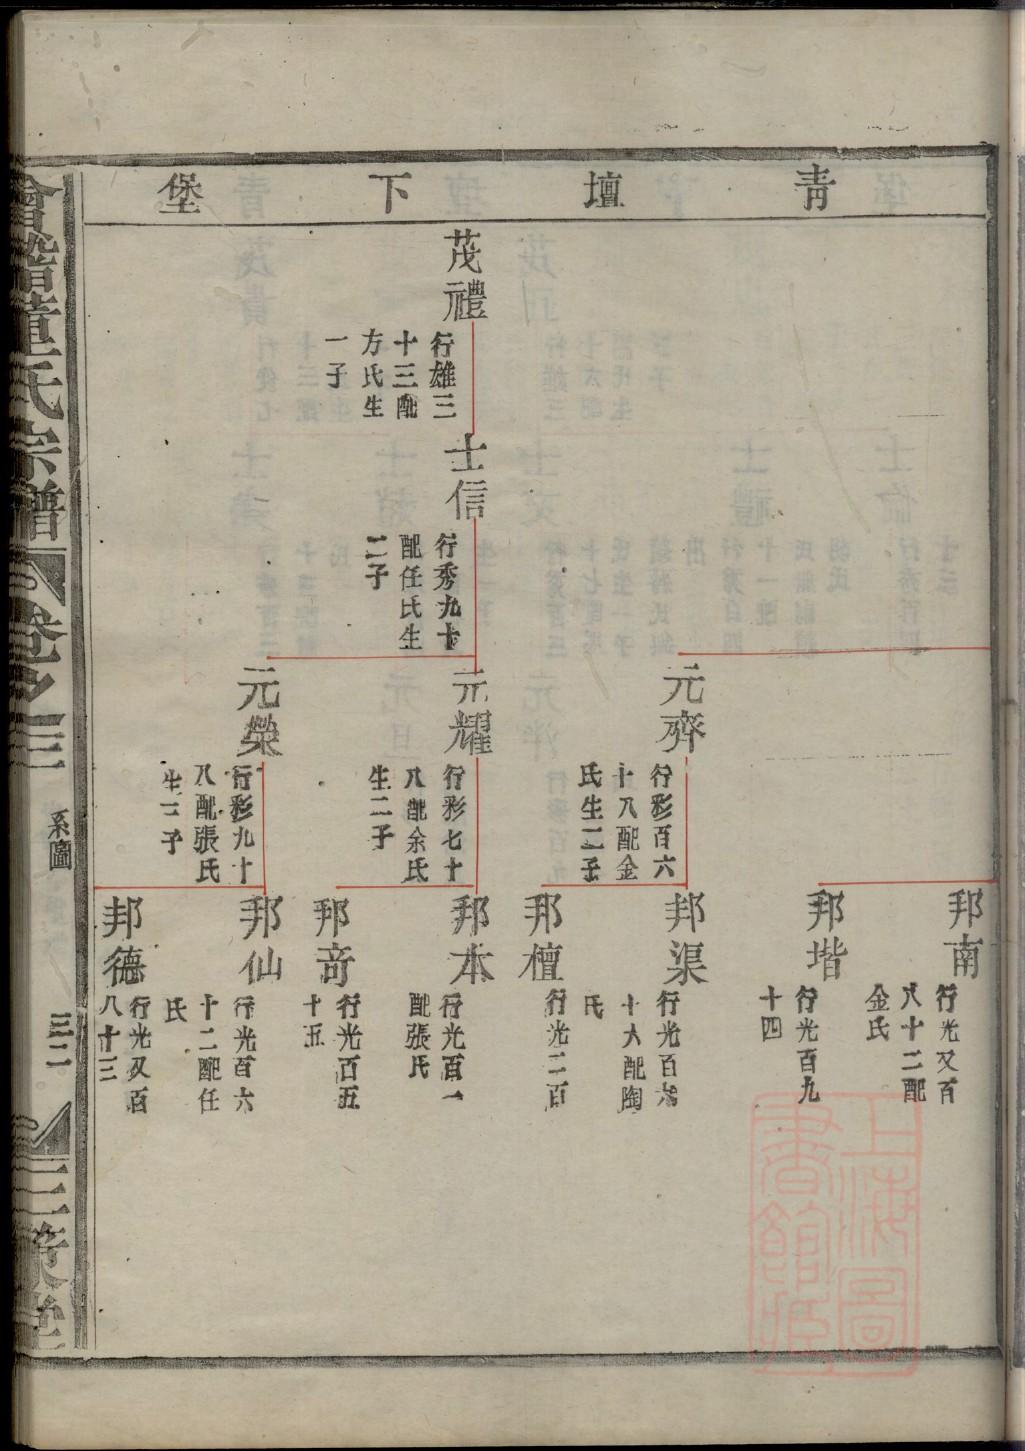 青壇下堡
茂禮
行雄三
十三配
方氏生
一子
士信
行秀九十
配任氏生
二子
元齊
行彩百六
十八配金
氏生二子
元耀
行彩七十
八配余氏
生二子
元榮
行彩九十
八配張氏
生二子
邦南
行光又百
八十二配
金氏
邦堦
行光百九
十四
邦渠
行光百
十六配陶
氏
邦檀
行光二百
邦本
行光百一
配張氏
邦奇
行光百五
十五
邦仙
行光百六
十二配任
氏
邦德
行光又百
八十三
會稽董氏宗譜
卷之三
系圖
三二
三策堂
上海圖書館藏